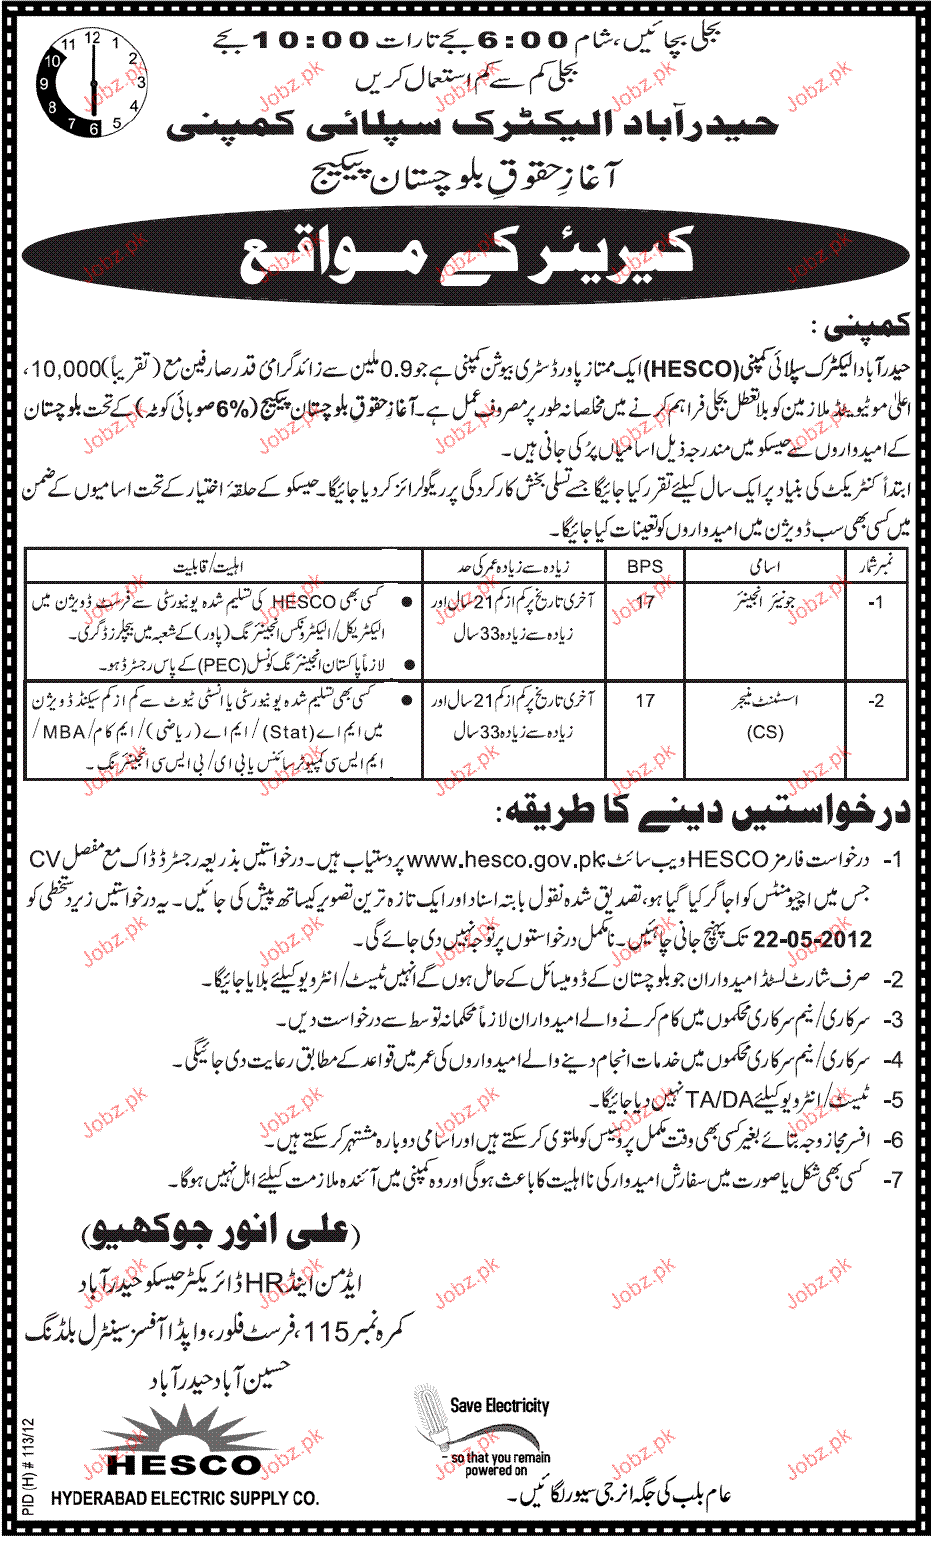 بجلی بچائیں، شام 6:00 بجے تا رات 10:00 بجے
بجلی کم سے کم استعمال کریں
12 1 2 3 4 5 6 7 8 9 10 11
حیدرآباد الیکٹرک سپلائی کمپنی
آغازِ حقوقِ بلوچستان پیکیج
کیریئر کے مواقع
کمپنی:
حیدرآباد الیکٹرک سپلائی کمپنی (HESCO) ایک ممتاز پاور ڈسٹری بیوشن کمپنی ہے جو 0.9 ملین سے زائد گرامی قدر صارفین مع (تقریباً) 10,000،
اعلیٰ موٹیویٹڈ ملازمین کو بلاتعطل بجلی فراہم کرنے میں مخلصانہ طور پر مصروف عمل ہے۔ آغازِ حقوق بلوچستان پیکیج (6% صوبائی کوٹہ) کے تحت بلوچستان
کے امیدواروں سے حیسکو میں مندرجہ ذیل اسامیاں پُر کی جانی ہیں۔
ابتداً کنٹریکٹ کی بنیاد پر ایک سال کیلئے تقرر کیا جائیگا جسے تسلی بخش کارکردگی پر ریگولرائز کر دیا جائیگا۔ حیسکو کے حلقۂ اختیار کے تحت اسامیوں کے ضمن
میں کسی بھی سب ڈویژن میں امیدواروں کو تعینات کیا جائیگا۔
نمبر شمار اسامی BPS زیادہ سے زیادہ عمر کی حد اہلیت/قابلیت
1- جونیئر انجینئر 17 آخری تاریخ پر کم از کم 21 سال اور ● کسی بھی HESCO کی تسلیم شدہ یونیورسٹی سے فرسٹ ڈویژن میں
زیادہ سے زیادہ 33 سال الیکٹریکل/الیکٹرونکس انجینئرنگ (پاور) کے شعبہ میں بیچلرز ڈگری۔
● لازماً پاکستان انجینئرنگ کونسل (PEC) کے پاس رجسٹرڈ ہو۔
2- اسسٹنٹ منیجر 17 آخری تاریخ پر کم از کم 21 سال اور ● کسی بھی تسلیم شدہ یونیورسٹی یا انسٹی ٹیوٹ سے کم از کم سیکنڈ ڈویژن
(CS) زیادہ سے زیادہ 33 سال میں ایم اے (Stat)/ایم اے (ریاضی)/ایم کام/MBA/
ایم ایس سی کمپیوٹر سائنس یا بی ای/بی ایس سی انجینئرنگ۔
درخواستیں دینے کا طریقہ:
1- درخواست فارمز HESCO ویب سائٹ: www.hesco.gov.pk پر دستیاب ہیں۔ درخواستیں بذریعہ رجسٹرڈ ڈاک مع مفصل CV
جس میں اچیومنٹس کو اجاگر کیا گیا ہو، تصدیق شدہ نقول بابتہ اسناد اور ایک تازہ ترین تصویر کیساتھ پیش کی جائیں۔ یہ درخواستیں زیر دستخطی کو
22-05-2012 تک پہنچ جانی چاہئیں۔ نامکمل درخواستوں پر توجہ نہیں دی جائے گی۔
2- صرف شارٹ لسٹڈ امیدواران جو بلوچستان کے ڈومیسائل کے حامل ہوں گے انہیں ٹیسٹ/انٹرویو کیلئے بلایا جائیگا۔
3- سرکاری/نیم سرکاری محکموں میں کام کرنے والے امیدواران لازماً محکمانہ توسط سے درخواست دیں۔
4- سرکاری/نیم سرکاری محکموں میں خدمات انجام دینے والے امیدواروں کی عمر میں قواعد کے مطابق رعایت دی جائیگی۔
5- ٹیسٹ/انٹرویو کیلئے TA/DA نہیں دیا جائیگا۔
6- افسر مجاز وجہ بتائے بغیر کسی بھی وقت مکمل پروسیس کو ملتوی کر سکتے ہیں اور اسامی دوبارہ مشتہر کر سکتے ہیں۔
7- کسی بھی شکل یا صورت میں سفارش امیدوار کی نااہلیت کا باعث ہوگی اور وہ کمپنی میں آئندہ ملازمت کیلئے اہل نہیں ہوگا۔
(علی انور جوکھیو)
ایڈمن اینڈ HR ڈائریکٹر حیسکو حیدرآباد
کمرہ نمبر 115، فرسٹ فلور، واپڈا آفسز سینٹرل بلڈنگ
حسین آباد حیدرآباد
HESCO
HYDERABAD ELECTRIC SUPPLY CO.
Save Electricity
- so that you remain
powered on
عام بلب کی جگہ انرجی سیور لگائیں۔
PID (H) # 113/12
Jobz.pk